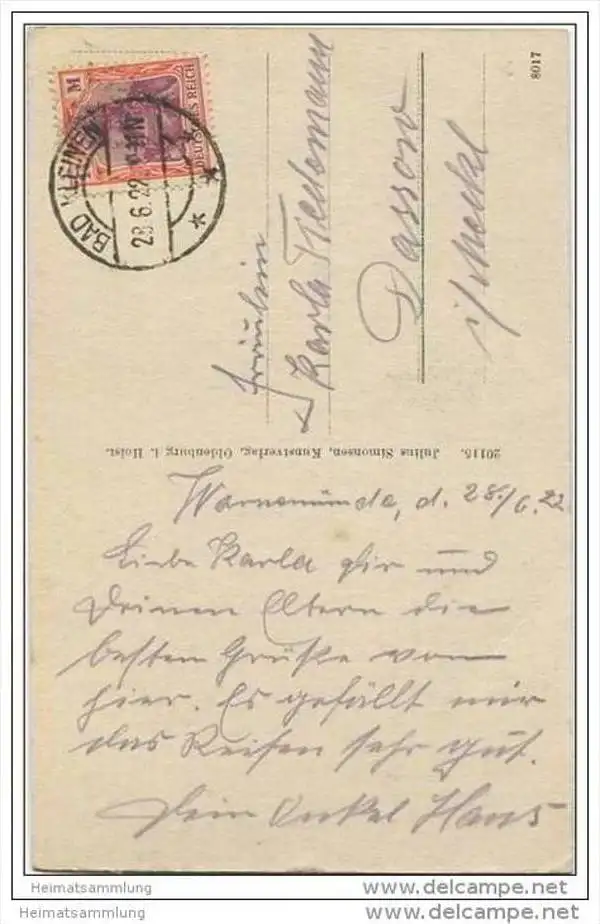 M
DEUTSCHES REICH
BAD KLEINEN
28.6.22
8017
Fräulein
Karla
Dassow
i/Meckl
20115. Julius Simonsen, Kunstverlag, Oldenburg i. Holst.
Warnemünde, d. 28./6.22
Liebe Karla Dir und
Deinen Eltern die
besten Grüße von
hier. Es gefällt mir
das Reisen sehr gut.
Dein Onkel Hans
Heimatsammlung
Heimatsammlung
delcampe.net
delcampe.net